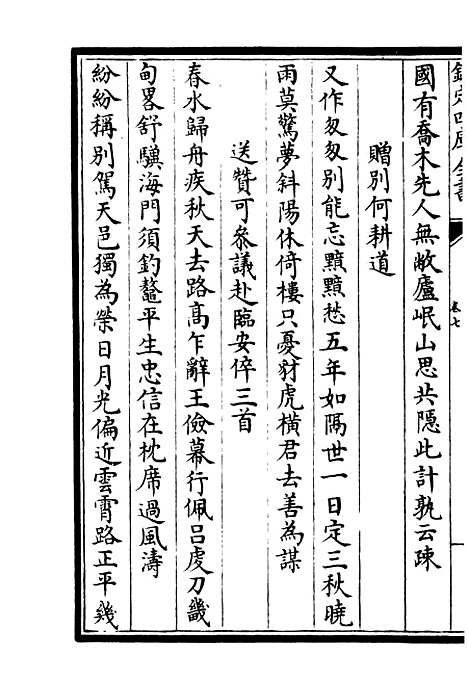 欽定四庫全書
卷七
國有喬木先人無敝廬岷山思共隱此計孰云疎
贈別何耕道
又作匆匆別能忘黯黯愁五年如隔世一日定三秋曉
雨莫驚夢斜陽休倚樓只憂豺虎橫君去善為謀
送贊可叅議赴臨安倅三首
春水歸舟疾秋天去路髙乍辭王儉幕行佩呂虔刀畿
甸畧舒驥海門須釣鼇平生忠信在枕席過風濤
紛紛稱別駕天邑獨為榮日月光偏近雲霄路正平幾